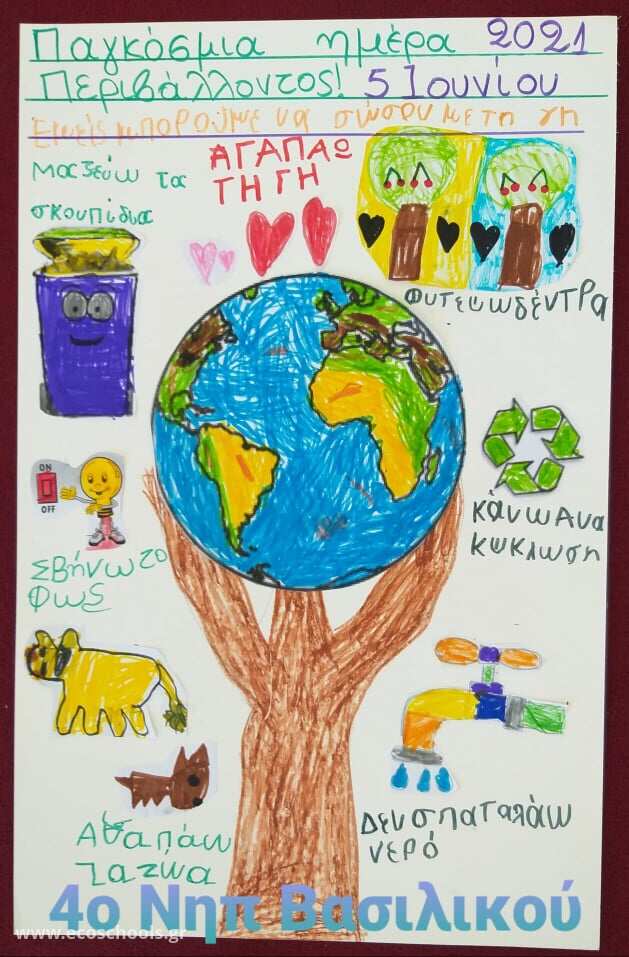 Παγκόσμια ημέρα 2021
Περιβάλλοντος! 5 Ιουνίου
Εμείς μπορούμε να σώσουμε τη γη
μαζεύω τα
σκουπίδια
ΑΓΑΠΑΩ
ΤΗ ΓΗ
ΦυτεψωδέντΡΑ
ON
OFF
κάνωΑνα
κψκλωση
ΣΒήνωτο
Φως
ΑΓαπάω
ταζωα
Δενσπαταλάω
νερό
4ο Νηπ Βασιλικού
www.ecoschools.gr